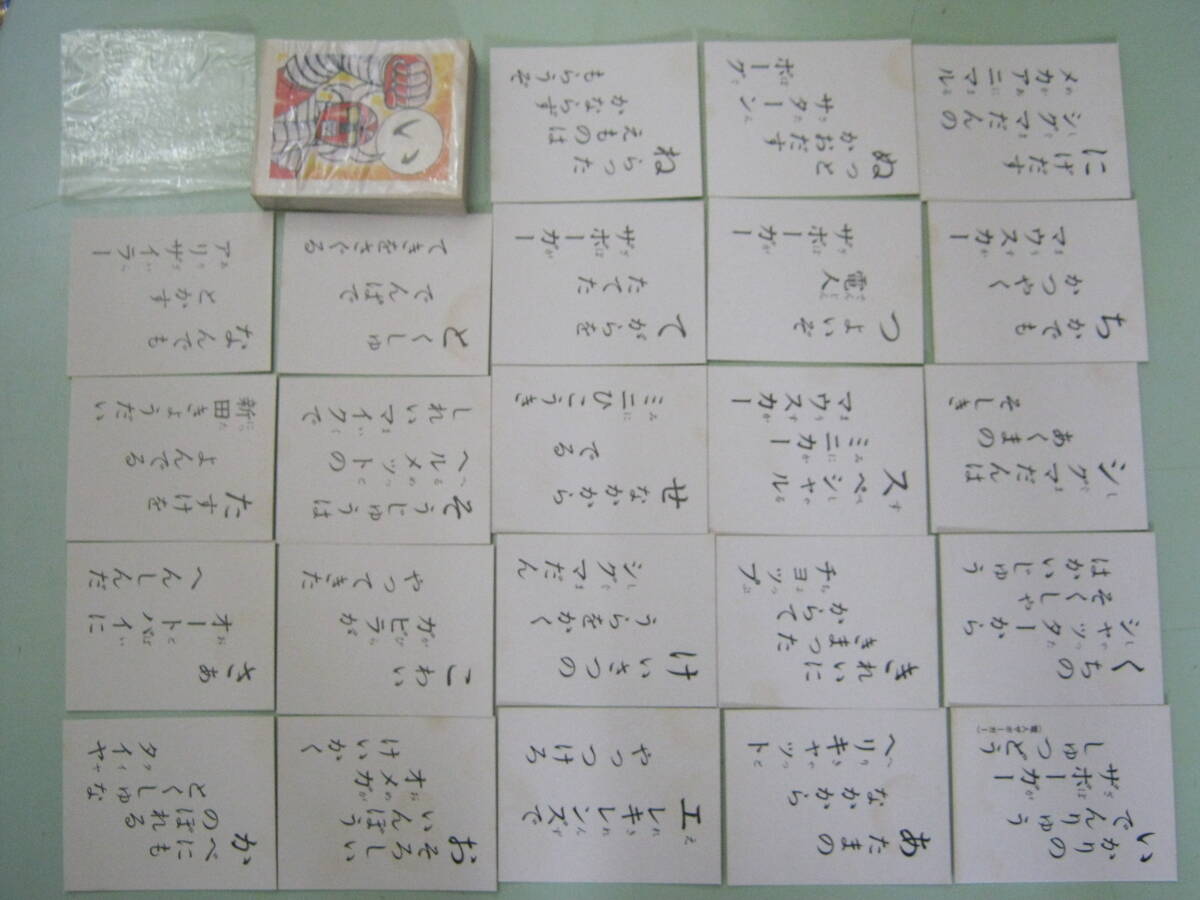 にげだす
シグマだんの
メカアニマル
ぬっと
かおだす
サターン
ボーグ
ねらった
えものは
かならず
もらうぞ
い
ちかでも
かつやく
マウスカー
つよいぞ
電人
ザボーガー
てがらを
たてた
ザボーガー
とくしゅ
でんぱで
てきをさぐる
なんでも
とかす
アリザイラー
シグマだんは
あくまの
そしき
スペシャル
ミニカー
マウスカー
せなかから
でる
ミニひこうき
そうじゅうは
ヘルメットの
しれいマイクで
たすけを
よんでる
新田きょうだい
くちの
シャッターから
そくしゃ
はかいじゅう
きれいに
きまった
からて
チョップ
けいさつの
うらをかく
シグマだん
こわい
ガビラが
やってきた
さあ
オートバイに
へんしんだ
いかりの
でんりゅう
ザボーガー
しゅつどう
(電人ザボーガー)
あたまの
なかから
ヘリキャット
エレキレンズで
やっつけろ
おそろしい
いんぼう
オメガ
けいかく
かべにも
のぼれる
とくしゅな
タイヤ